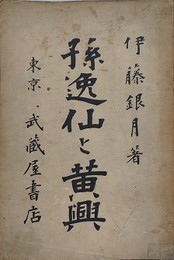 伊藤銀月著
孫逸仙と黄興
東京．武蔵屋書店